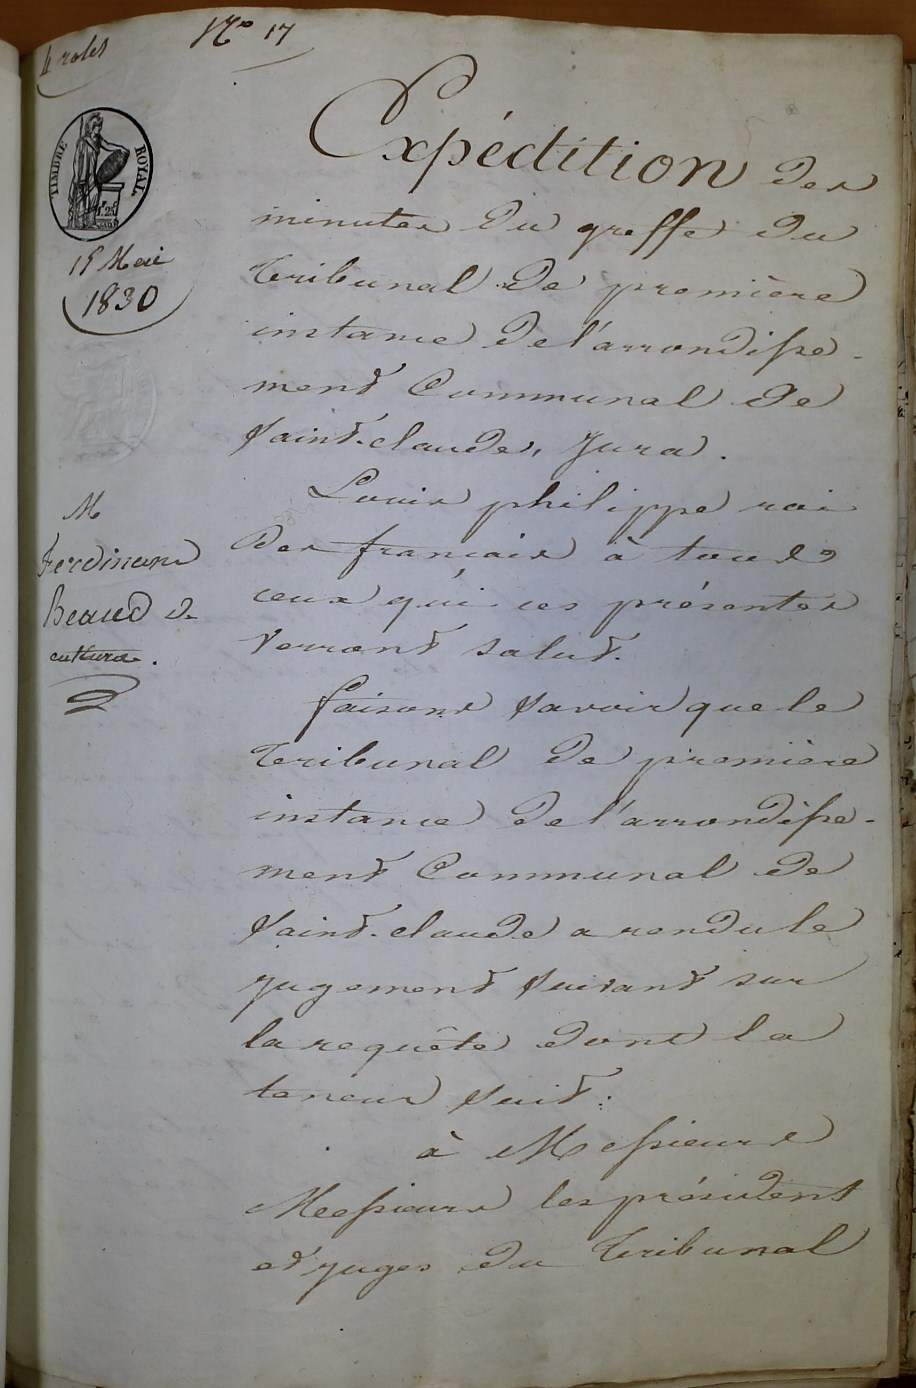 4 roles
N° 17
TIMBRE ROYAL
1F 25
15 Mai
1830
M
Ferdinand
Beaud de
cuttura.
Expédition des
minutes du greffe du
Tribunal de première
instance de l'arrondisse-
ment Communal de
Saint-claude, Jura.
Louis philippe roi
des francais à tous
ceux qui ces présentes
verront salut.
faisons savoir que le
Tribunal de première
instance de l'arrondisse-
ment Communal de
Saint-claude a rendu le
jugement suivant sur
la requête dont la
teneur suit:
à Messieurs
Messieurs les président
et juges du Tribunal